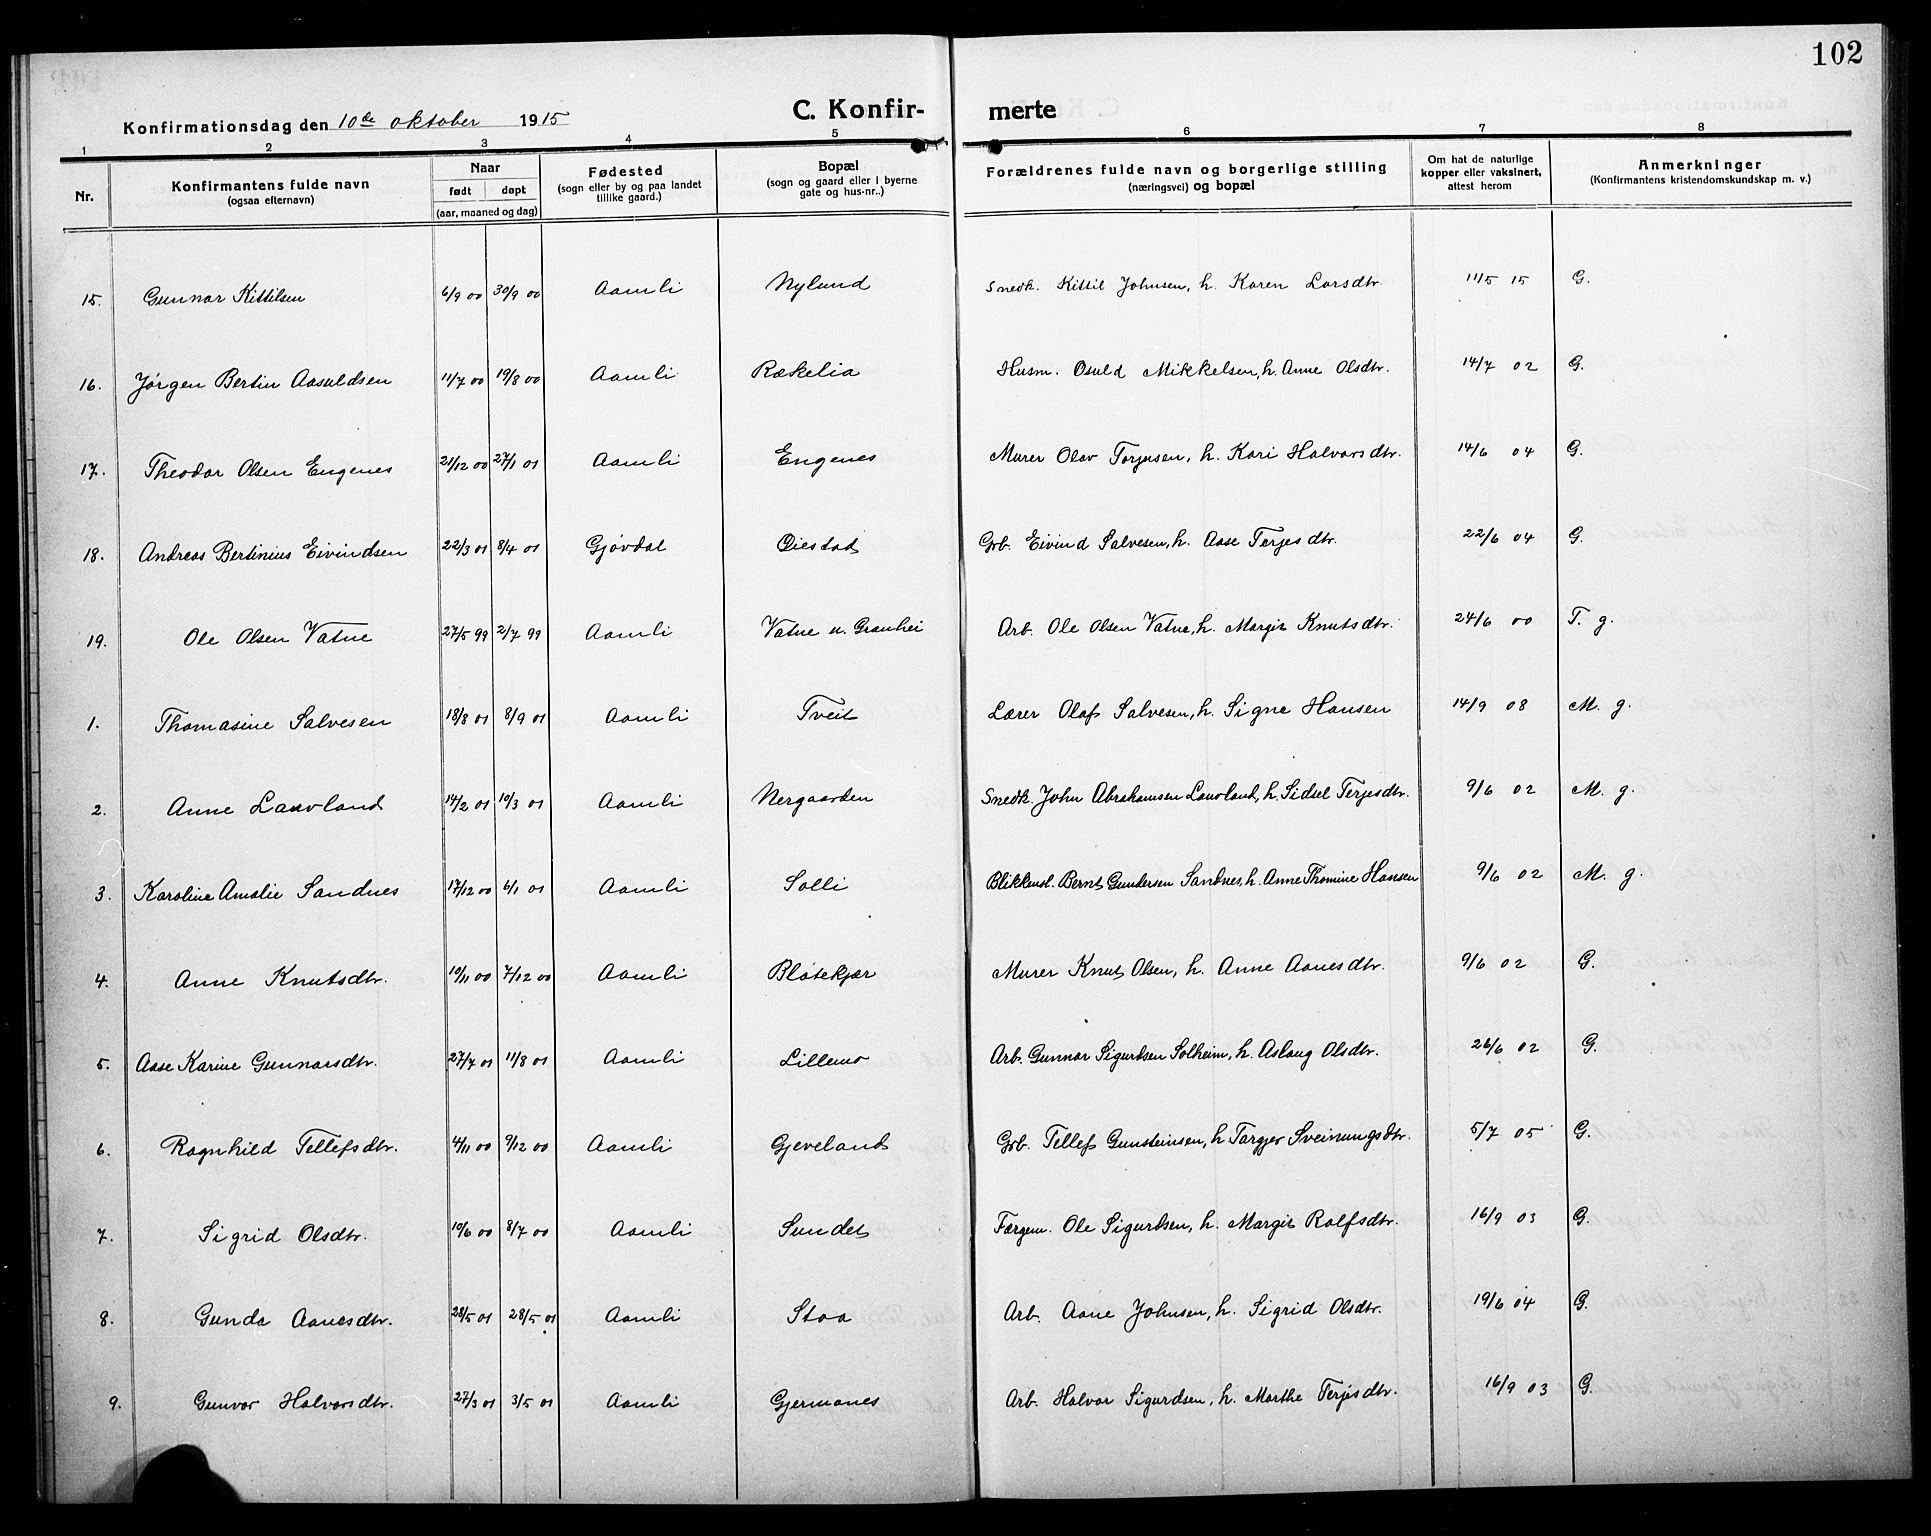 102
Konfirmationsdag den 10de oktober 1915 C. Konfirmerte
1 2 3 4 5 6 7 8
Nr. Konfirmantens fulde navn (ogsaa efternavn) Naar født døpt (aar, maaned og dag) Fødested (sogn eller by og paa landet tillike gaard.) Bopæl (sogn og gaard eller i byerne gate og hus-nr..) Forældrenes fulde navn og borgerlige stilling (næringsvei) og bopæl Om hat de naturlige kopper eller vaksinert, attest herom Anmerkninger (Konfirmantens kristendomskundskap m. v.)
15. Gunnar Kittilsen 6/9 00 30/9 00 Aamli Nylund Snedk. Kittil Johnsen, h. Karen Larsdtr. 11/5 15 G.
16. Jørgen Bertin Aasuldsen 11/7 00 19/8 00 Aamli Rækelia Husm. Osuld Mikkelsen, h. Anne Olsdtr. 14/7 02 G.
17. Theodor Olsen Engenes 21/12 00 27/1 01 Aamli Engenes Murer Olav Torjusen, h. Kari Halvorsdtr. 14/6 04 G.
18. Andreas Bertinius Eivindsen 22/3 01 8/4 01 Gjøvdal Øiestad Grb. Eivind Salvesen, h. Aase Terjesdtr. 22/6 04 G.
19. Ole Olsen Vatne 27/5 99 2/7 99 Aamli Vatne u. Granhei Arb. Ole Olsen Vatne, h. Margit Knutsdtr. 24/6 00 T. g.
1. Thomasine Salvesen 18/8 01 8/9 01 Aamli Tveit Lærer Olaf Salvesen, h. Signe Hansen 14/9 08 M. g.
2. Anne Lauvland 14/2 01 10/3 01 Aamli Nergaarden Snedk. John Abrahamsen Lauvland, h. Sidsel Terjesdtr. 9/6 02 M. g.
3. Karoline Amalie Sandnes 17/12 00 6/1 01 Aamli Solli Blikkensl. Bernt Gundersen Sandnes, h. Anne Thomine Hansen 9/6 02 M. g.
4. Anne Knutsdtr. 10/11 00 7/12 00 Aamli Bløtekjær Murer Knut Olsen, h. Anne Aanesdtr. 9/6 02 G.
5. Aase Karine Gunnarsdtr. 27/7 01 11/8 01 Aamli Lillemo Arb. Gunnar Sigurdsen Solheim, h. Aslaug Olsdtr. 26/6 02 G.
6. Ragnhild Tellefsdtr. 4/11 00 9/12 00 Aamli Gjeveland Grb. Tellef Gunsteinsen, h. Targjer Sveinungsdtr. 5/7 05 G.
7. Sigrid Olsdtr. 10/6 00 8/7 00 Aamli Sundet Færgem. Ole Sigurdsen, h. Margit Rolfsdtr. 16/9 03 G.
8. Gunda Aanesdtr. 28/5 01 28/5 01 Aamli Stoa Arb. Aane Johnsen, h. Sigrid Olsdtr. 19/6 04 G.
9. Gunvor Halvorsdtr. 27/3 01 3/5 01 Aamli Gjermones Arb. Halvor Sigurdsen, h. Marthe Terjesdtr. 16/9 03 G.